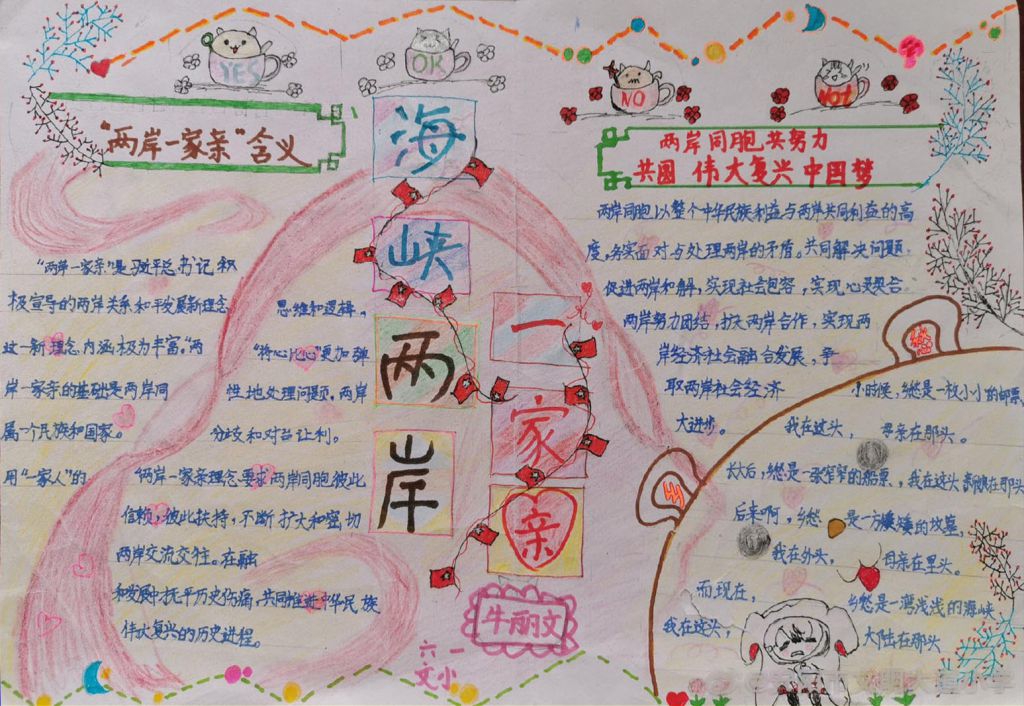 YES
OK
NO
Not
"两岸一家亲"含义
海
峡
两
岸
一
家
亲
两岸同胞共努力
共圆 伟大复兴中国梦
"两岸一家亲"是习近平总书记积
极宣导的两岸关系和平发展新理念
这一新理念内涵极为丰富。"两
岸一家亲的基础是两岸同
属一个民族和国家。
用"一家人"的
思维和逻辑。
"将心比心"更加弹
性地处理问题,两岸
分歧和对台让利。
"两岸一家亲理念要求两岸同胞彼此
信赖,彼此扶持,不断扩大和密切
两岸交流交往。在融
和发展中抚平历史伤痛,共同推进中华民族
伟大复兴的历史进程。
两岸同胞以整个中华民族利益与两岸共同利益的高
度,务实面对与处理两岸的矛盾。共同解决问题
促进两岸和解,实现社会包容,实现心灵契合
两岸努力团结,扩大两岸合作,实现两
岸经济社会融合发展,争
取两岸社会经济
大进步。
乡
愁
小时候,乡愁是一枚小小的邮票,
我在这头, 母亲在那头。
长大后,乡愁是一张窄窄的船票,我在这头新娘在那头
后来啊,乡愁是一方矮矮的坟墓,
我在外头, 母亲在里头。
而现在, 乡愁是一湾浅浅的海峡
我在这头, 大陆在那头
牛丽文
六一
文小